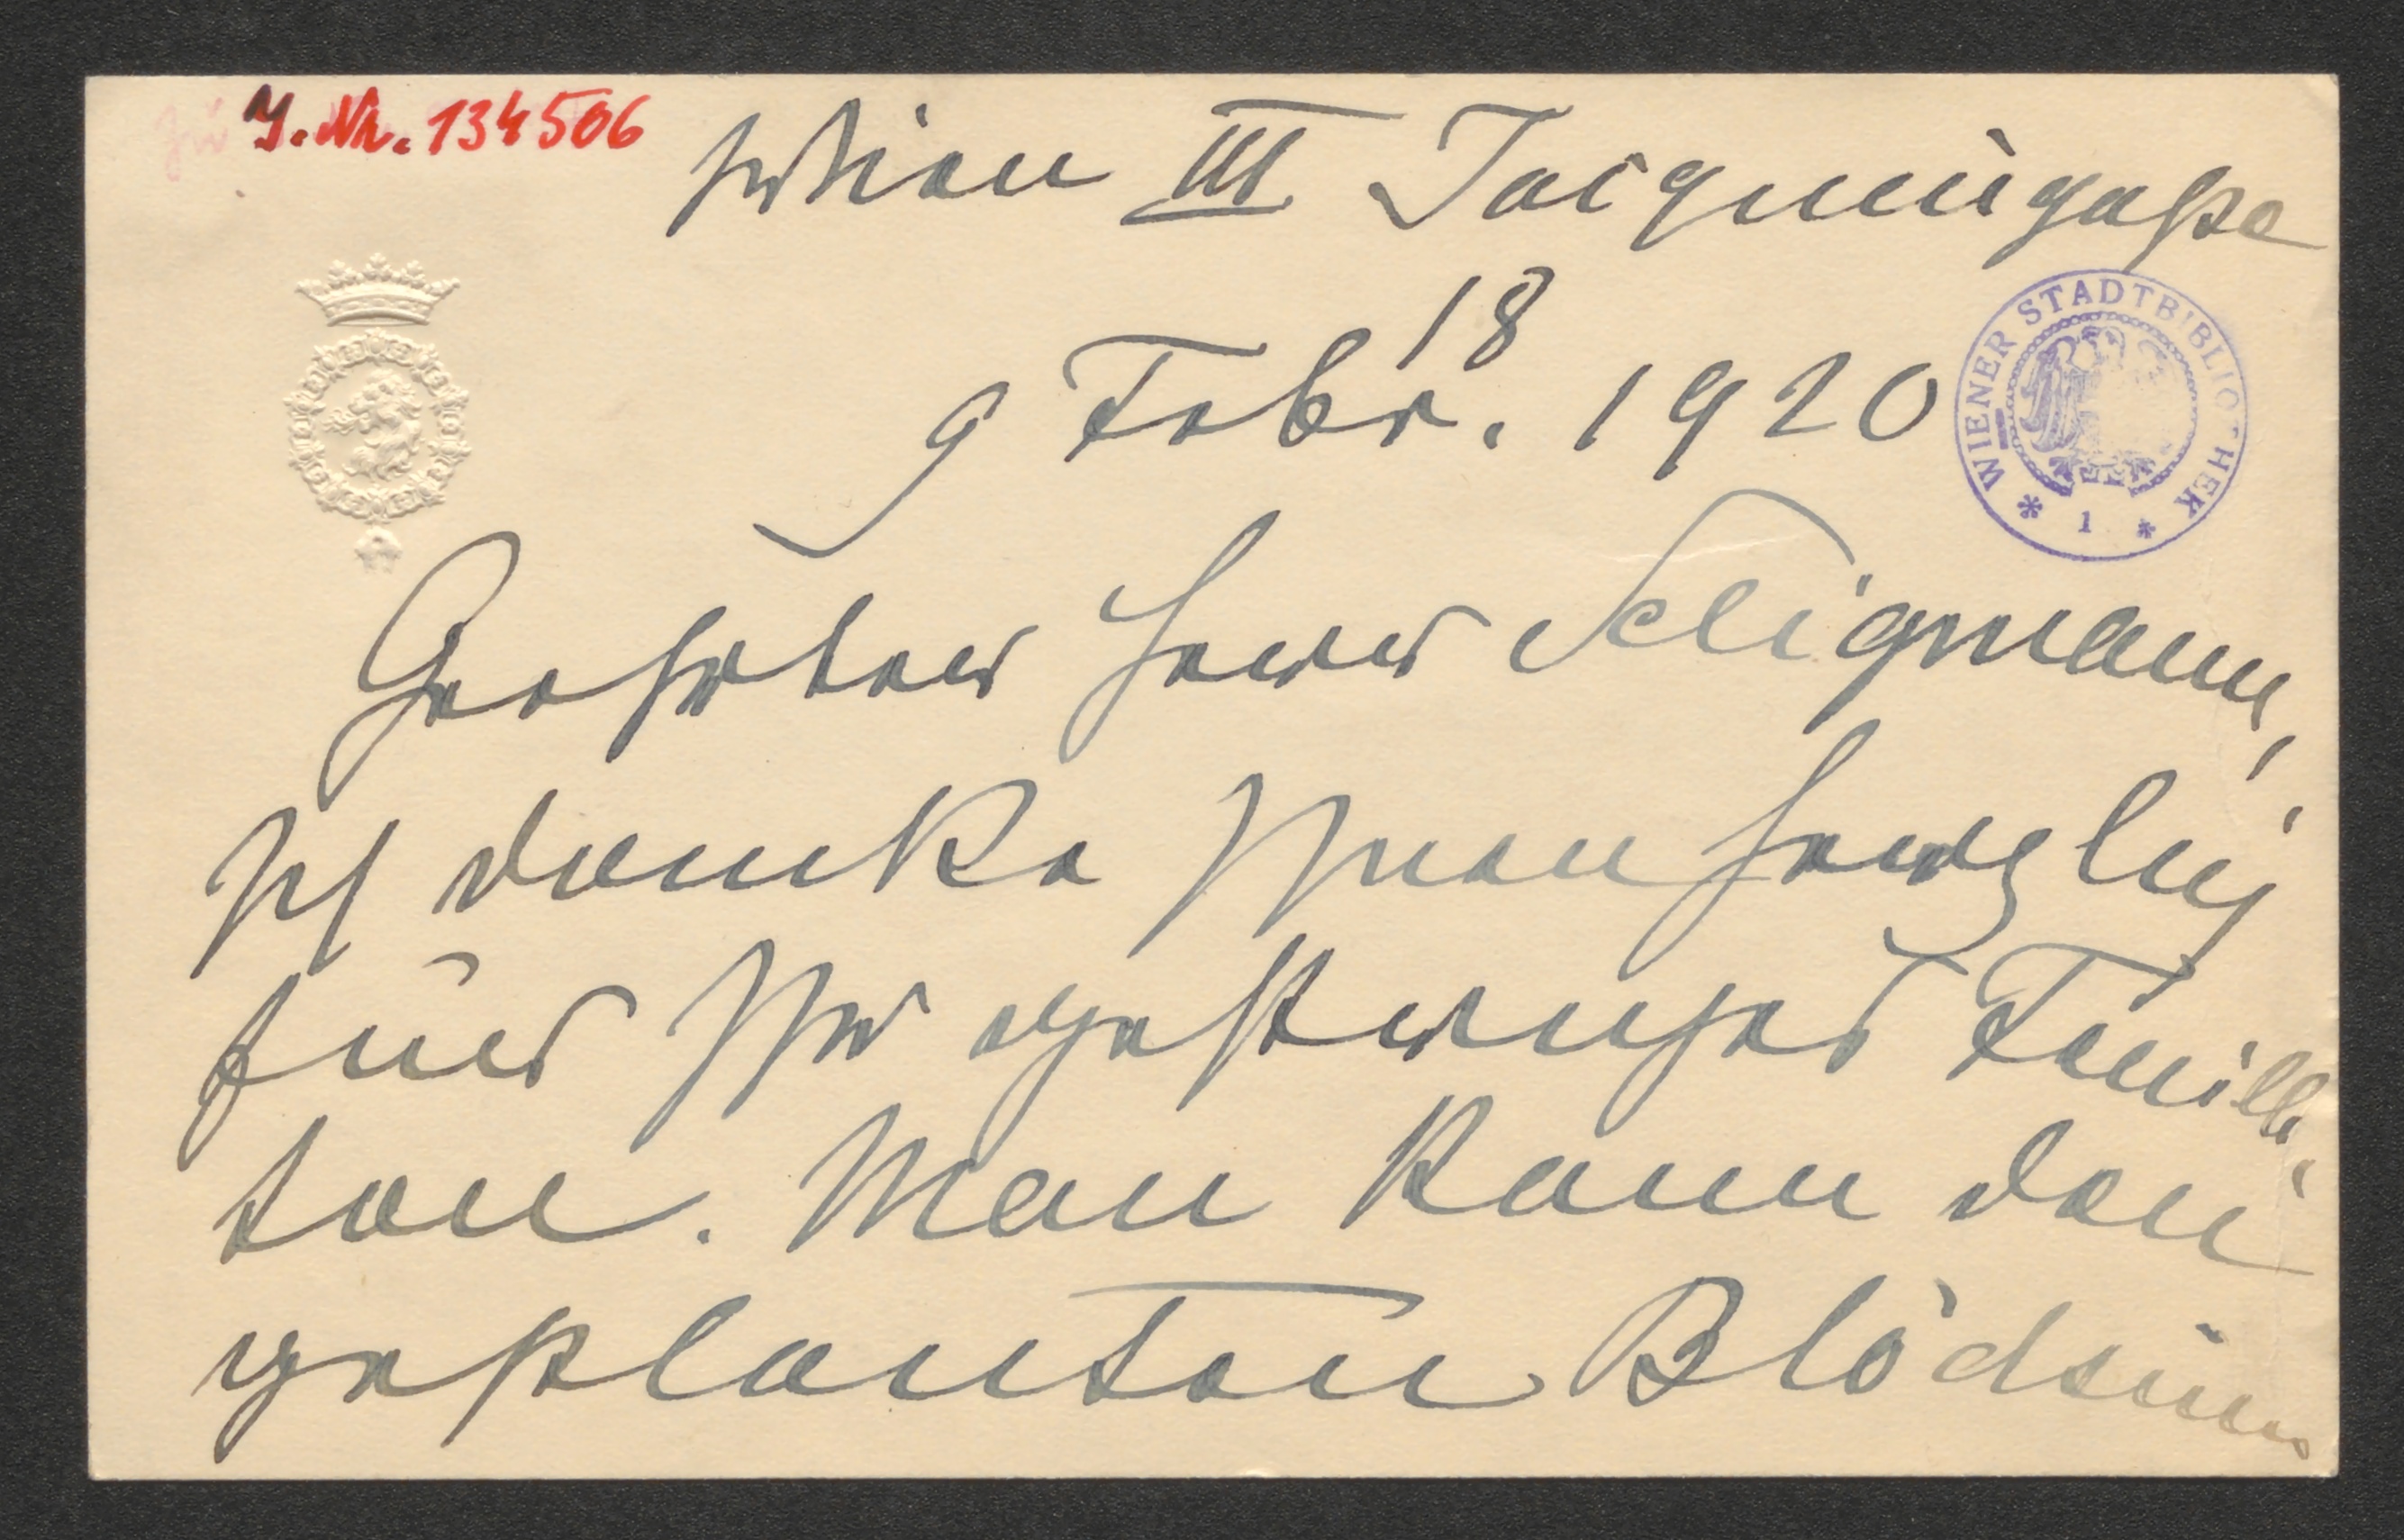 zu J. Nr. 134506
Wien III Jacquingaße
18
9 Febr. 1920
WIENER STADTBIBLIOTHEK
* 1 *
Geehrter Herr Seligmann,
Ich danke Ihnen herzlich
für Ihr gestriges Feuille-
ton. Man kann den
geplanten Blödsinn